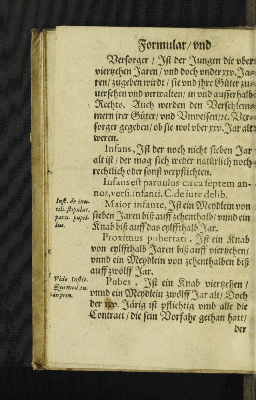 Formular / vnd
Versorger / Ist der Jungen die vber
viertzehen Jaren / vnd doch vnder xxv. Ja-
ren / zugeben würdt / sie vnd jhre Güter zu-
uersehen vnd verwalten / in vnd ausserhalb
Rechts. Auch werden den Verschwen-
mern jrer Güter / vnd Vnweisen / ꝛc. Ver-
sorger gegeben / ob sie wol vber xxv. Jar alt
weren.
Infans, Ist der noch nicht sieben Jar
alt ist / der mag sich weder natürlich noch
rechtlich oder sonst verpflichten.
Infans est paruulus circa septem an-
nos, vers. infanti. C. de iure delib.
Maior infante, Ist ein Meydlein von
sieben Jaren biß auff zehenthalb / vnnd ein
Knab biß auff das eylffthalb Jar.
Proximus pubertati, Ist ein Knab
von eylffthalb Jaren biß auff viertzehen /
vnnd ein Meydlein von zehenthalben biß
auff zwölff Jar.
Pubes, Ist ein Knab viertzehen /
vnnd ein Meydlein zwölff Jar alt / Doch
der xxv. Järig ist pflichtig vmb alle die
Contract / die sein Vorfahr gethan hatt /
der
Inst. de inu-
tili. stipulat.
para. pupil-
lus.
Vide Instit.
in prin.